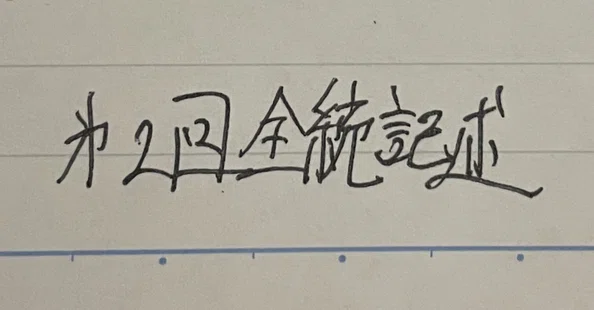 第2回全統記述